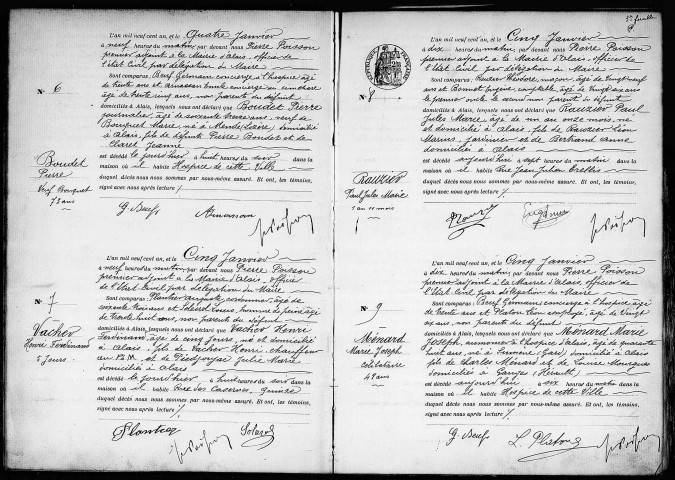 L'an mil neuf cent un, et le Quatre Janvier
à neuf heures du matin, par devant nous Pierre Poisson
premier adjoint à la Mairie d'Alais, officier de
l'Etat Civil par délégation du Maire
Sont comparus: Beuf Germain concierge à l'hospice âgé
de trente ans et
âgé de trente cinq ans, non parents du défunt
domiciliés à Alais, lesquels nous ont déclaré que Boudet Pierre
journalier, âgé de soixante treize ans, veuf de
Bouquet Marie, né à Mende Lozère, domicilié
à Alais, fils de défunts Pierre Boudet et de
Claret Jeanne
est décédé le jourd'hier à huit heures du soir dans la
maison où il habite Hospice de cette Ville
duquel décès nous nous sommes par nous-même assuré. Et ont, les témoins,
signé avec nous après lecture
N° 6
Boudet
Pierre
Veuf Bouquet
73 ans
G. Beuf
L'an mil neuf cent un, et le Cinq Janvier
à neuf heures du matin, par devant nous Pierre Poisson
premier adjoint à la Mairie d'Alais, officier
de l'Etat Civil par délégation du Maire
Sont comparus: Plantier Auguste, âgé de
soixante ans et homme de peine âgé
de trente huit ans, non parents du défunt
domiciliés à Alais, lesquels nous ont déclaré que Vacher Henri
Ferdinand, âgé de cinq jours, né et domicilié
à Alais, fils de Vacher Henri, chauffeur
au P.L.M. et de Julie Marie
domiciliés à Alais
est décédé le jourd'hier à huit heures du soir dans la
maison où il habite Rue des Casernes, quinze
duquel décès nous nous sommes par nous-même assuré. Et ont, les témoins,
signé avec nous après lecture
N° 7
Vacher
Henri Ferdinand
5 jours
L'an mil neuf cent un, et le Cinq Janvier
à dix heures du matin, par devant nous Pierre Poisson
premier adjoint à la Mairie d'Alais, officier de
l'Etat Civil par délégation du Maire
Sont comparus: Théodore, maçon, âgé de vingt neuf
ans et Bonnet Eugène, comptable, âgé de vingt six ans
le premier oncle le second non parent du défunt
domiciliés à Alais, lesquels nous ont déclaré que Rauzier Paul
Jules Marie âgé de un an onze mois, né
et domicilié à Alais, fils de Rauzier Léon
Marius, jardinier et de Bertrand Anna
domiciliés à Alais
est décédé aujourd'hui à sept heures du matin dans la
maison où il habite Rue Jean Julien
duquel décès nous nous sommes par nous-même assuré. Et ont, les témoins,
signé avec nous après lecture
N° 8
Rauzier
Paul Jules Marie
1 an 11 mois
L'an mil neuf cent un, et le Cinq Janvier
à dix heures du matin, par devant nous Pierre Poisson
premier adjoint à la Mairie d'Alais, officier de
l'Etat Civil par délégation du Maire
Sont comparus: Beuf Germain, concierge à l'hospice âgé de
trente ans et Platon Léon employé, âgé de vingt
ans, non parents du défunt
domiciliés à Alais, lesquels nous ont déclaré que Ménard Marie
Joseph, aumônier à l'hospice d'Alais, âgé de quarante
huit ans, né à (Gard) domicilié à Alais
fils de Charles Ménard et de Louise
domiciliés à Ganges (Hérault)
est décédé aujourd'hui à six heures du matin dans la
maison où il habite Hospice de cette Ville
duquel décès nous nous sommes par nous-même assuré. Et ont, les témoins,
signé avec nous après lecture
N° 9
Ménard
Marie Joseph
célibataire
48 ans
G. Beuf L. Platon